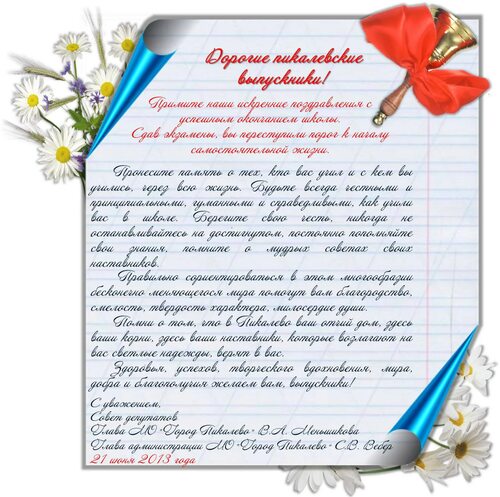 Дорогие пикалевские
выпускники!
Примите наши искренние поздравления с
успешным окончанием школы.
Сдав экзамены, вы переступили порог к началу
самостоятельной жизни.
Пронесите память о тех, кто вас учил и с кем вы
учились, через всю жизнь. Будьте всегда честными и
принципиальными, гуманными и справедливыми, как учили
вас в школе. Берегите свою честь, никогда не
останавливайтесь на достигнутом, постоянно пополняйте
свои знания, помните о мудрых советах своих
наставников.
Правильно сориентироваться в этом многообразии
бесконечно меняющегося мира помогут вам благородство,
смелость, твердость характера, милосердие души.
Помни о том, что в Пикалево ваш отчий дом, здесь
ваши корни, здесь ваши наставники, которые возлагают на
вас светлые надежды, верят в вас.
Здоровья, успехов, творческого вдохновения, мира,
добра и благополучия желаем вам, выпускники!
С уважением,
Совет депутатов
Глава МО «Город Пикалево» В.А. Меньшикова
Глава администрации МО «Город Пикалево» С.В. Вебер
21 июня 2013 года